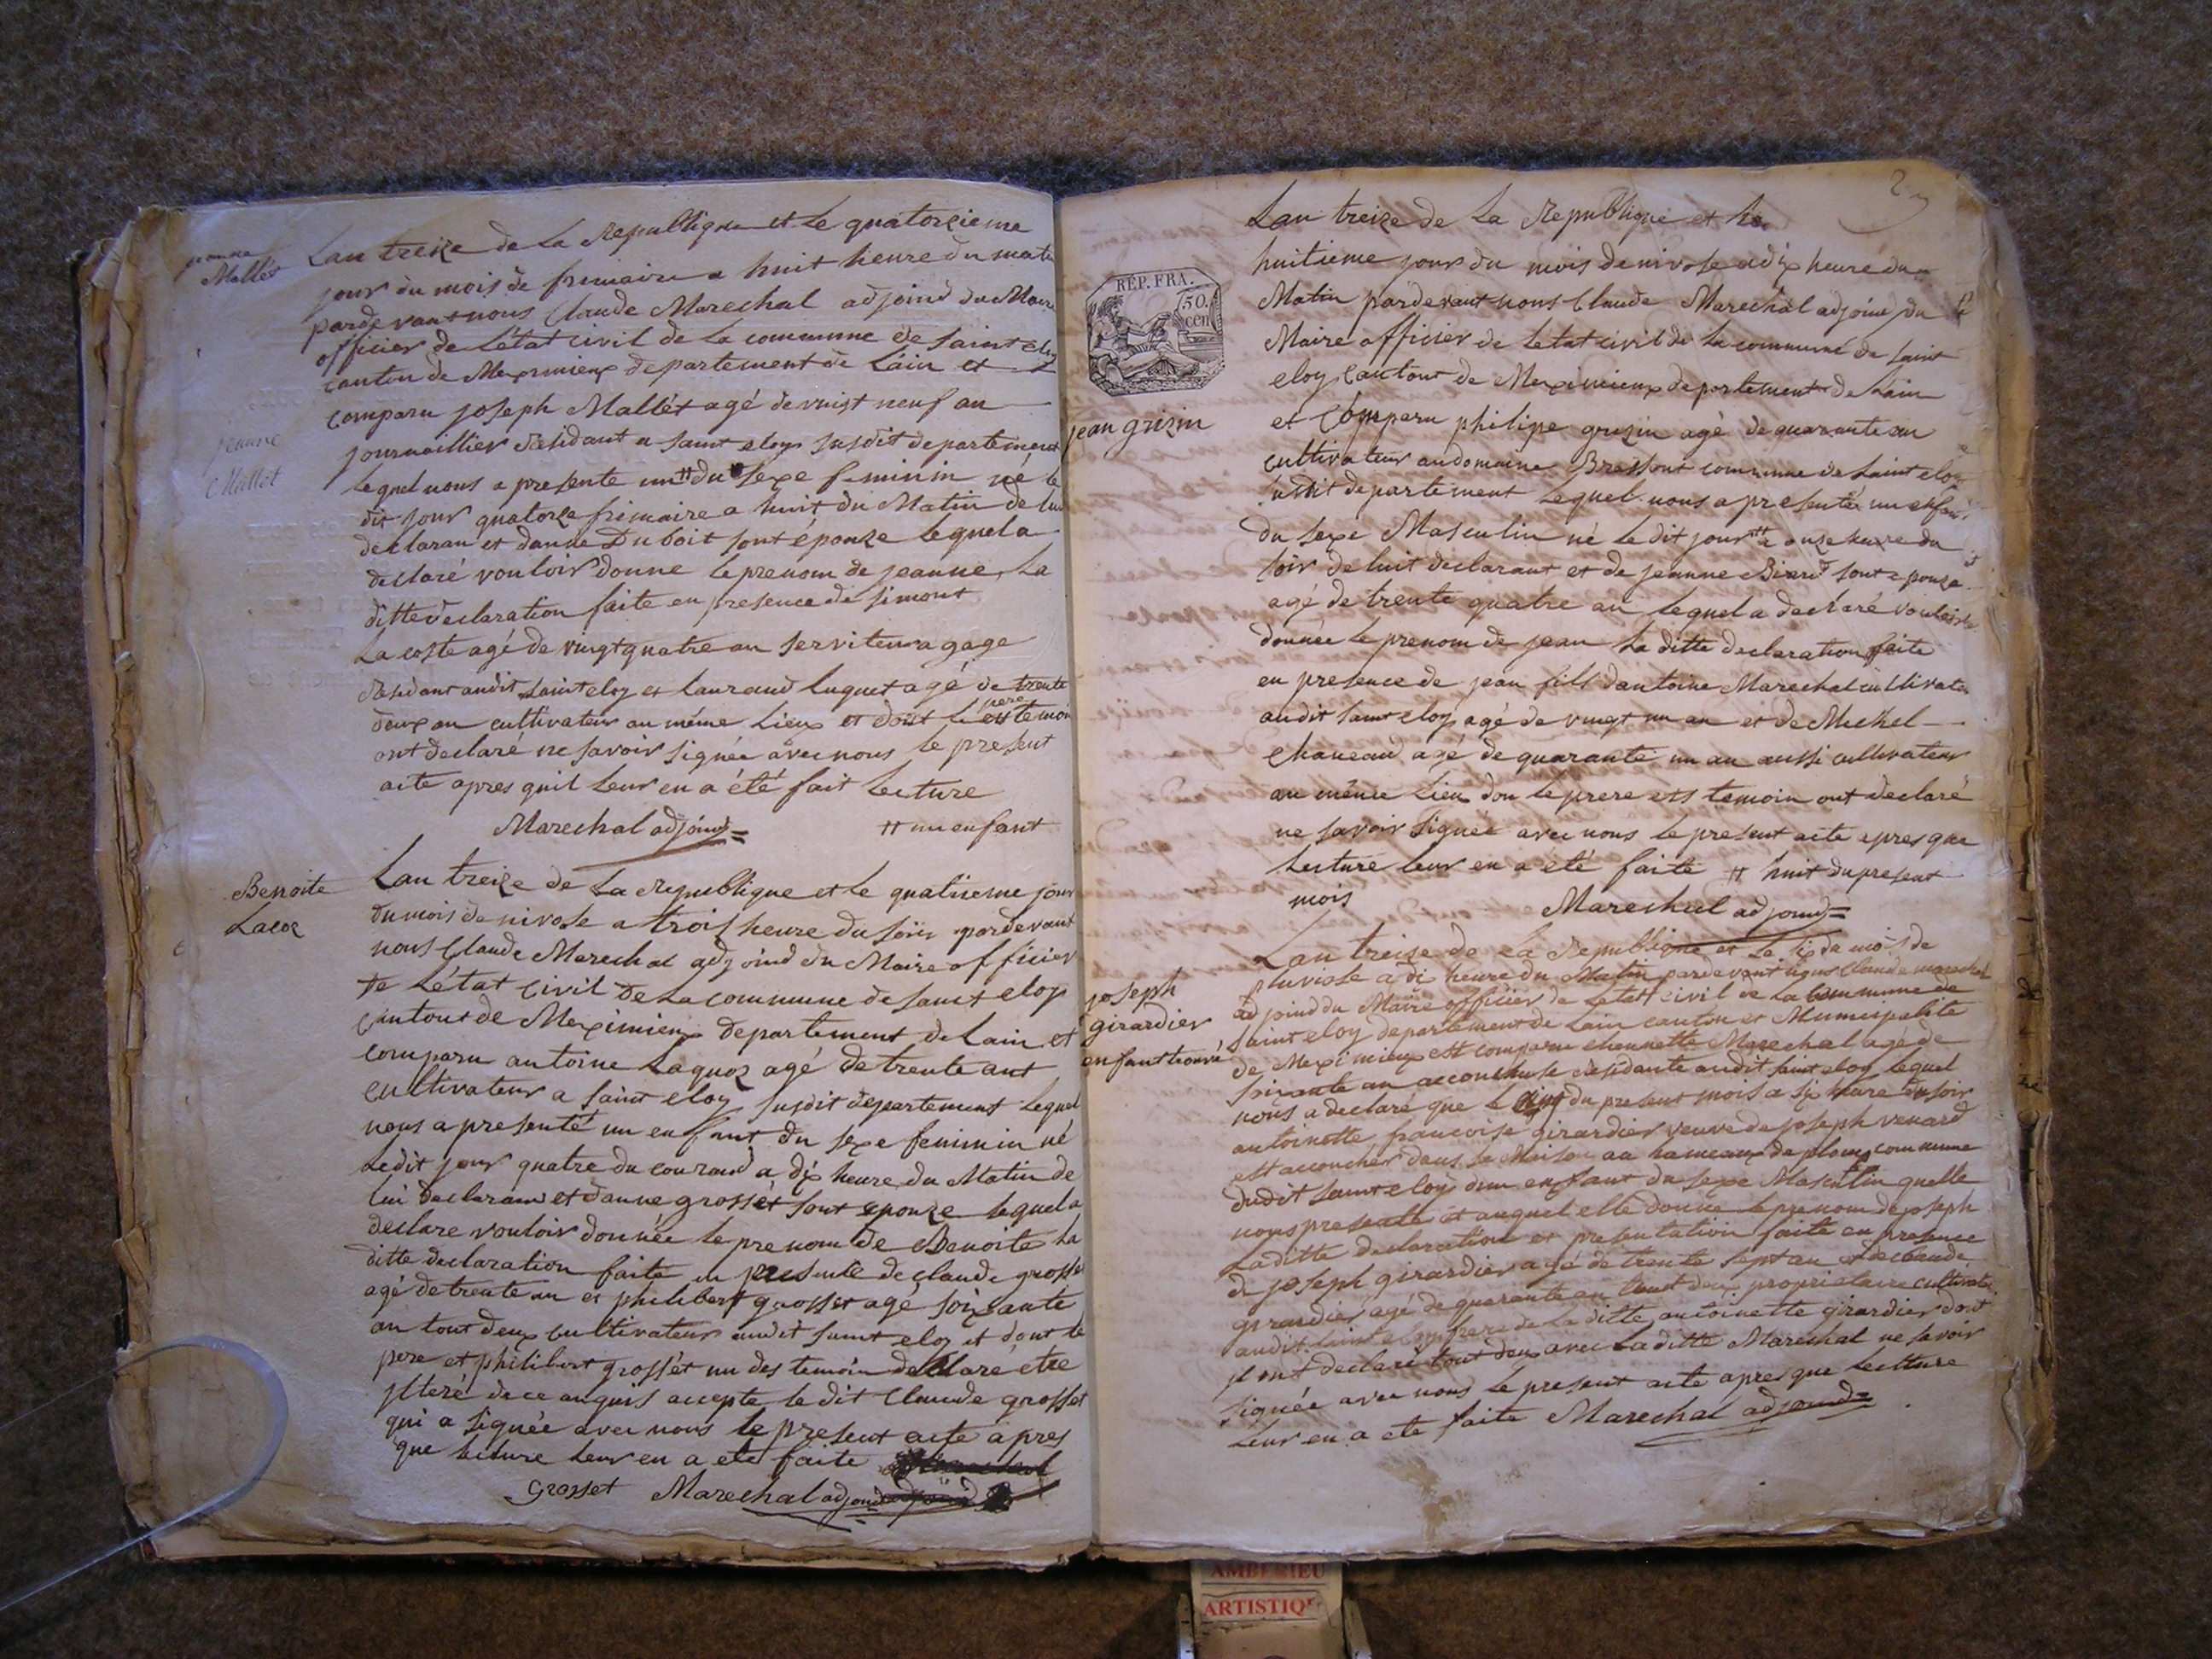 jeanne
Mallet
Lan treize de La Republique et Le quatorzieme
jour du mois de frimaire a huit heure du matin
pardevant nous Claude Marechal adjoind du Maire
officier de Létat civil de La commune de saint eloy
canton de Meximieux departement de Lain et
comparu joseph Mallét agé de vingt neuf an
journaillier Residant a saint eloy susdit departement
jeanne
Mallet
lequel nous a presente un # du sexe feminin né le
dit jour quatorze frimaire a huit du Matin de lui
declaran et danne Duboit sont épouze lequel a
declaré vouloir donne le prenom de jeanne, La
ditte declaration faite en presence de simont
La coste agé de vingt quatre an serviteur a gage
Residant audit saint eloy et Lauraud luquet agé de trente
deux an cultivateur au même Lieux et dont le pere et temoin
ont declaré ne savoir signée avec nous le present
acte apres quil Leur en a été fait Lecture
Marechal adjoind # un enfant
Benoite
Lacoz
Lan treize de La Republique et Le quatrieme jour
du mois de nivose a trois heure du soir pardevant
nous Claude Marechal adjoind du Maire officier
de Létat civil de La commune de saint eloy
cantont de Meximieux departement de Lain et
comparu antoine Laquoz agé de trente ant
cultivateur a saint eloy susdit departement Lequel
nous a presenté un enfant du sexe feminin né
Ledit jour quatre du couraud a dix heure du Matin de
lui declaraud et danne grossét sont epouze lequel a
declare vouloir donnée le prenom de Benoite La
ditte declaration faite en presente de claude grosset
agé de trente an et philibert grosset agé soixante
an tout deux cultivateur audit saint eloy et dont le
pere et philibert grossét un des temoin declaré etre
jlteré de ce anquis accepte le dit Claude grosset
qui a signée avec nous le present acte apres
que lecture leur en a eté faite
Grosset Marechal adjoind
2
RÉP. FRA.
50.
cen
jean grizin
Lan treize de La Republique et Le
huitieme jour du mois de nivose a dix heure du
Matin pardevant nous Claude Marechal adjoind du
Maire officier de Letat civil de La commune de saint
eloy cantont de Meximieux departement de Lain
et Comparu philipe grizin agé de quarante an
cultivateur au domaine Bressont commune de saint eloy
susdit departement Lequel nous a presentée un enfant
du sexe Masculin né Le dit jour # a onze heure du
soir de luit declarant et de jeanne Biard sont epouze
agé de trente quatre an lequel a declaré vouloir
donnée le prenom de jean La ditte declaration faite
en presence de jean fils dantoine Marechal cultivateur
audit saint eloy agé de vingt un an et de Michel
Chaneaud agé de quarante un an aussi cultivateur
au même Lieu don le prere ets temoin ont declaré
ne savoir signée avec nous le present acte apres que
Lecture leur en a été faite # huit du present
mois
Marechal adjoind
joseph
girardier
enfant trouvé
Lan treize de La Republique et Le six du mois de
pluviose a di heure du Matin pardevant nous Claude marechal
adjoind du Maire officier de Letat civil de La commune de
saint eloy departement de Lain canton et Municipalite
de Meximieux est comparue etiennette Marechal agé de
soixante an accoucheuse residante audit saint eloy lequel
nous a declaré que le cinq du present mois a six heure du soir
antoinette francoise girardier veuve de joseph venard
est accoucher dans sa Maison au hameaux de plomp commune
dudit saint eloy dun enfant du sexe Masculin quelle
nous presente et auquel elle donne le prenom de joseph
La ditte declaration et presentation faite en presence
de joseph girardier agé de trente sept an et de claude
girardier agé de quarante an tout deux proprietaire cultivateur
audit saint eloy frere de La ditte antoinette girardier dont
jl ont declaré tout deux avec La ditte Marechal ne savoir
signée avec nous le present acte apres que Lectture
Leur en a ete faite Marechal adjoind
AMBERIEU
ARTISTIQ